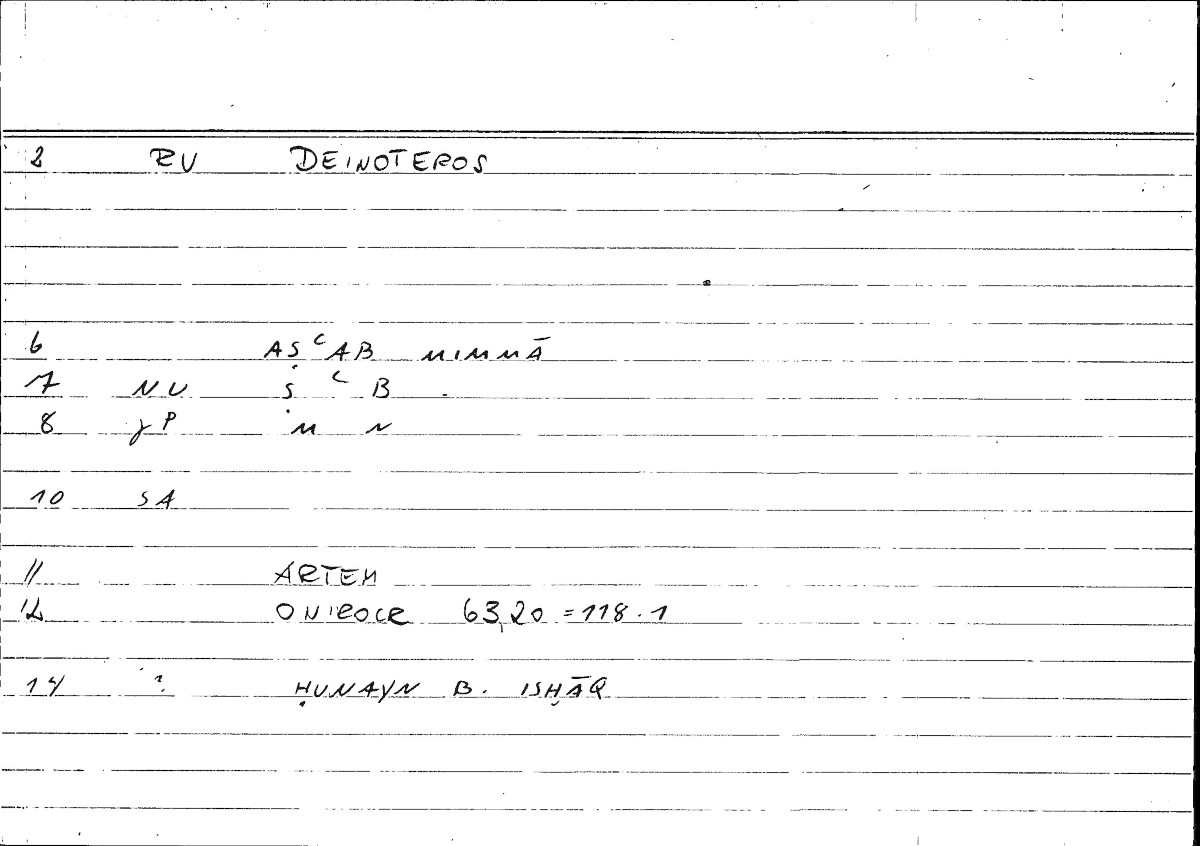 2 RU DEINOTEROS
6 AṢʿAB MIMMĀ
7 NU Ṣ ʿ B
8 γP M N
10 SA
11 ARTEM
12 ONIROCR 63,20 = 118.1
14 ? ḤUNAYN B. ISḤĀQ